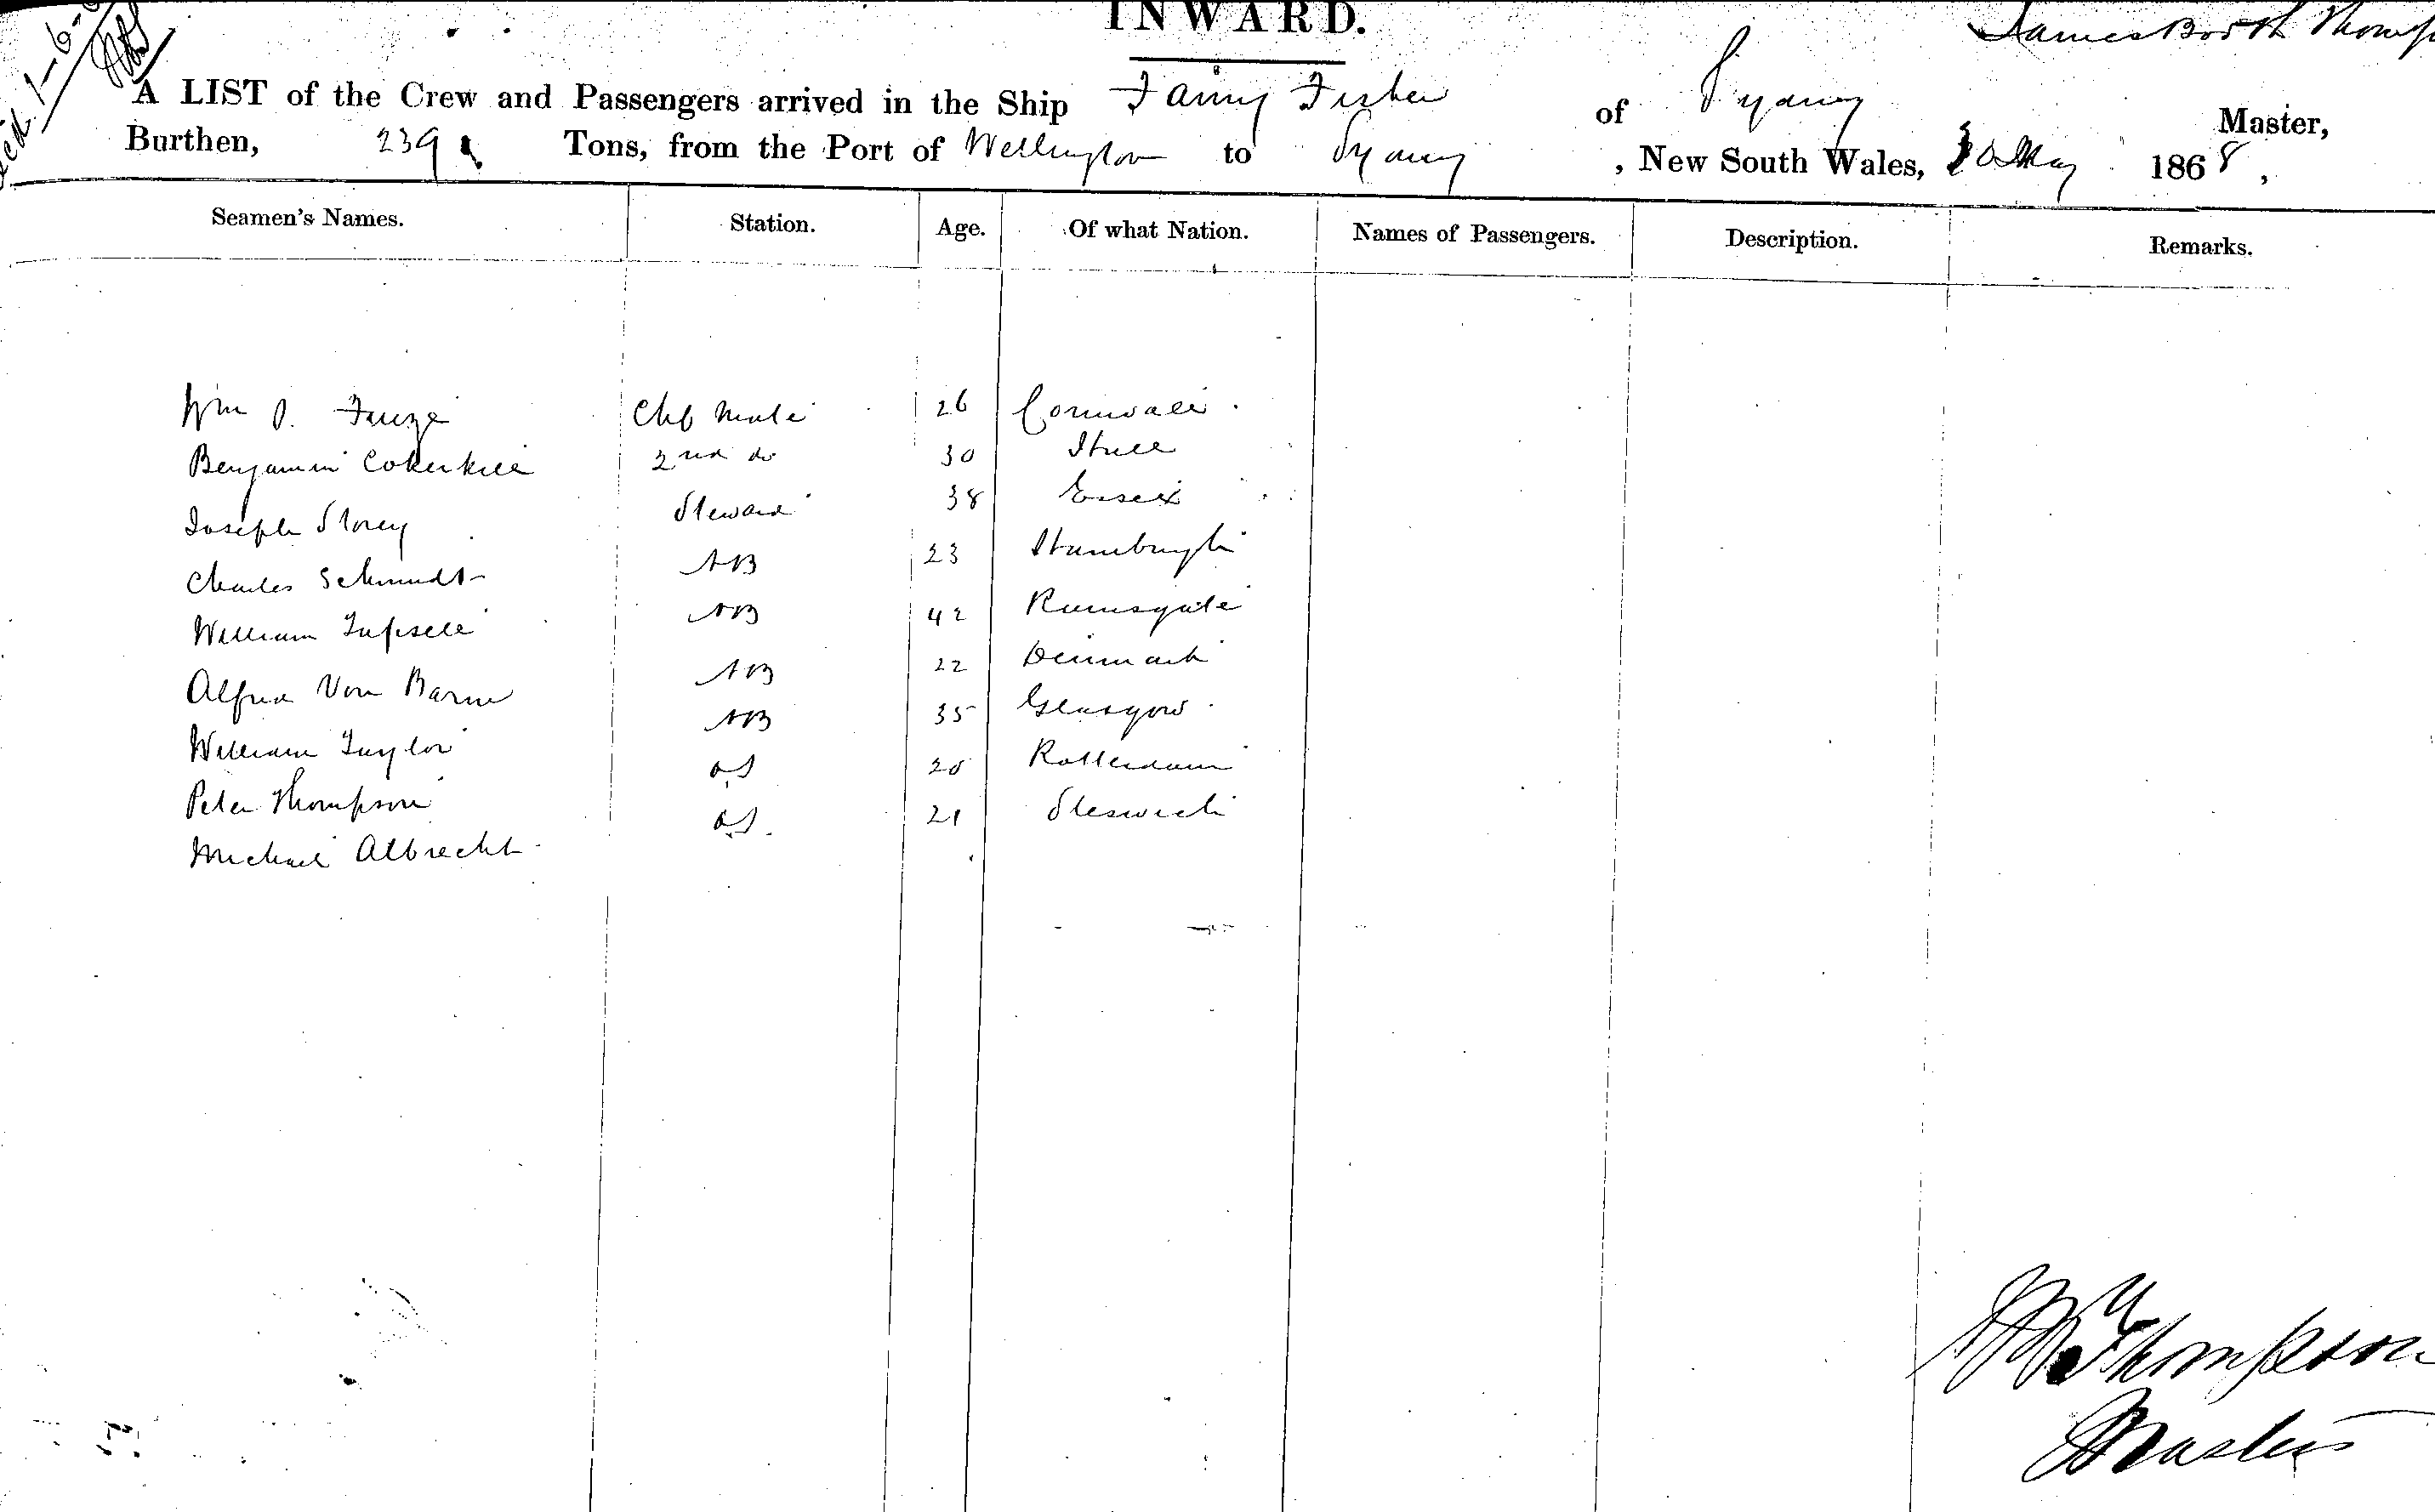 INWARD.
James Booth Thomp
A LIST of the Crew and Passengers arrived in the Ship Fanny Fisher of Sydney Master,
Burthen, 239 Tons, from the Port of Wellington to Sydney, New South Wales, 30 May 1868,
Seamen's Names. Station. Age. Of what Nation. Names of Passengers. Description. Remarks.
Wm 26 Cornwall
Benjamin 2nd do 30 Hull
Joseph Storey Steward 38 Essex
Charles Schmidt AB 23 Hamburgh
William AB 42 Ramsgate
Alfred Von AB 22 Denmark
William Taylor AB 35 Glasgow
Peter Thompson OS Rotterdam
Michael Albrecht OS 21 Sleswick
Thompson
Master